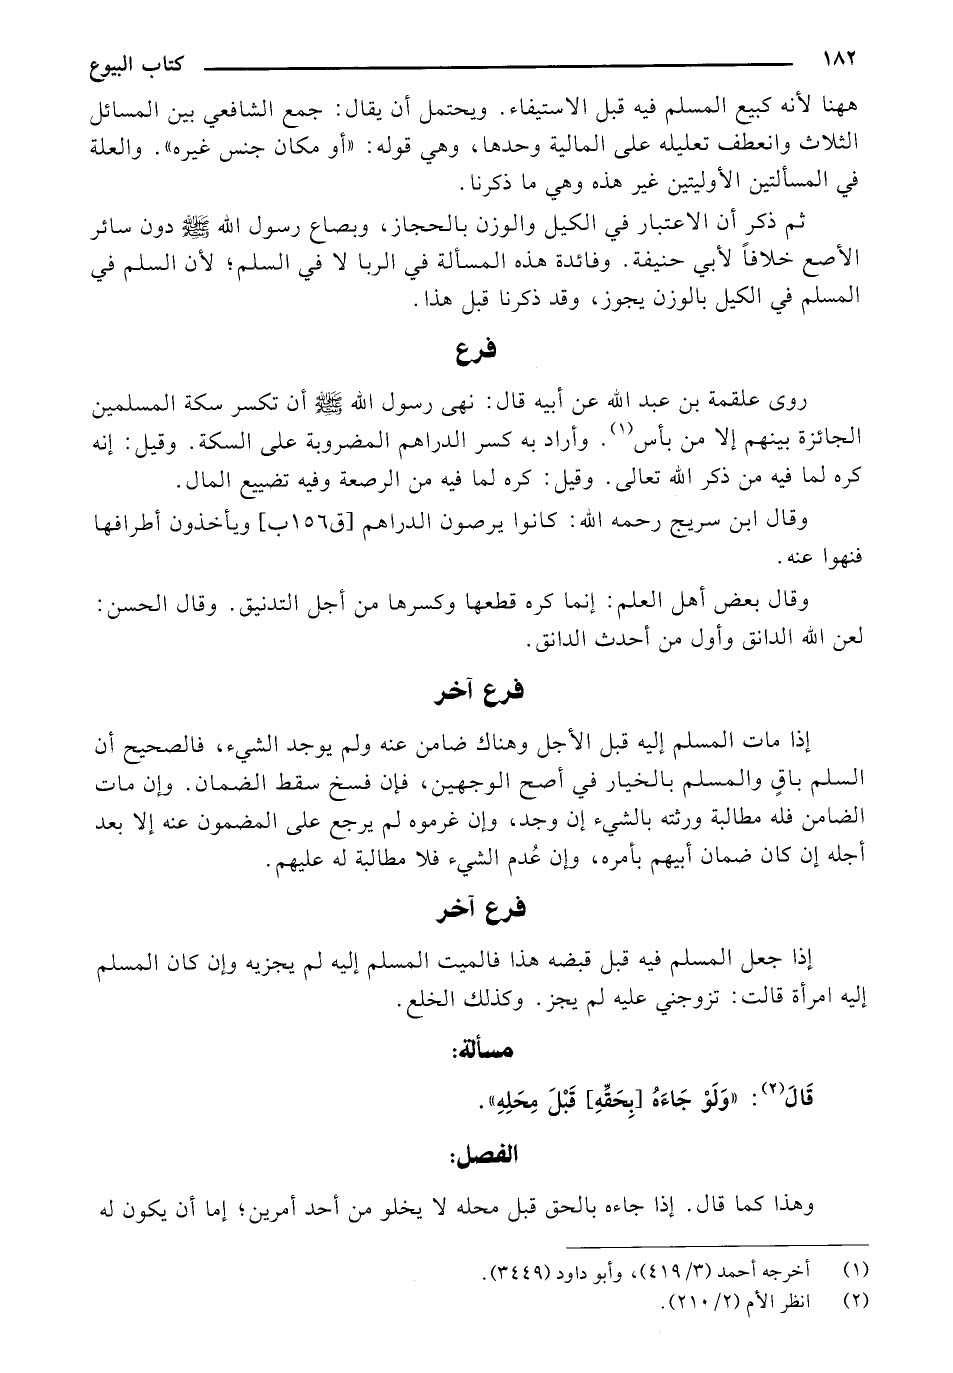 ١٨٢ كتاب البيوع
ههنا لأنه كبيع المسلم فيه قبل الاستيفاء. ويحتمل أن يقال: جمع الشافعي بين المسائل
الثلاث وانعطف تعليله على المالية وحدها، وهي قوله: «أو مكان جنس غيره». والعلة
في المسألتين الأوليتين غير هذه وهي ما ذكرنا.
ثم ذكر أن الاعتبار في الكيل والوزن بالحجاز، وبصاع رسول الله ﷺ دون سائر
الأصع خلافاً لأبي حنيفة. وفائدة هذه المسألة في الربا لا في السلم؛ لأن السلم في
المسلم في الكيل بالوزن يجوز، وقد ذكرنا قبل هذا.
فرع
روى علقمة بن عبد الله عن أبيه قال: نهى رسول الله ﷺ أن تكسر سكة المسلمين
الجائزة بينهم إلا من بأس(١). وأراد به كسر الدراهم المضروبة على السكة. وقيل: إنه
كره لما فيه من ذكر الله تعالى. وقيل: كره لما فيه من الرصعة وفيه تضييع المال.
وقال ابن سريج رحمه الله: كانوا يرصون الدراهم [ق١٥٦ب] ويأخذون أطرافها
فنهوا عنه.
وقال بعض أهل العلم: إنما كره قطعها وكسرها من أجل التدنيق. وقال الحسن:
لعن الله الدانق وأول من أحدث الدانق.
فرع آخر
إذا مات المسلم إليه قبل الأجل وهناك ضامن عنه ولم يوجد الشيء، فالصحيح أن
السلم باقٍ والمسلم بالخيار في أصح الوجهين، فإن فسخ سقط الضمان. وإن مات
الضامن فله مطالبة ورثته بالشيء إن وجد، وإن غرموه لم يرجع على المضمون عنه إلا بعد
أجله إن كان ضمان أبيهم بأمره، وإن عُدم الشيء فلا مطالبة له عليهم.
فرع آخر
إذا جعل المسلم فيه قبل قبضه هذا فالميت المسلم إليه لم يجزيه وإن كان المسلم
إليه امرأة قالت: تزوجني عليه لم يجز. وكذلك الخلع.
مسألة:
قَالَ(٢): «وَلَوْ جَاءَهُ [بِحَقِّهِ] قَبْلَ مِحَلِهِ».
الفصل:
وهذا كما قال. إذا جاءه بالحق قبل محله لا يخلو من أحد أمرين؛ إما أن يكون له
(١) أخرجه أحمد (٣/ ٤١٩)، وأبو داود (٣٤٤٩).
(٢) انظر الأم (٢/ ٢١٠).